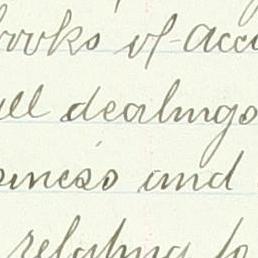 books of acc
all dealings
siness and
relating to